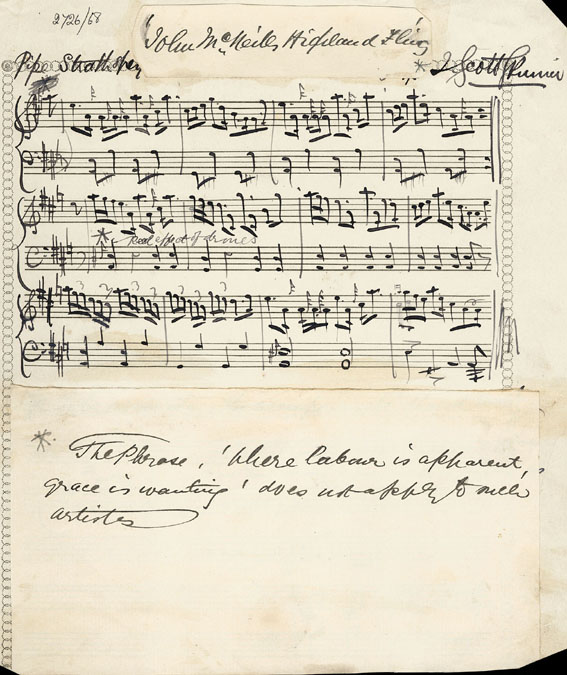 2726/68
'John McNeill's Highland Fling
Pipe Strathspey
J Scott Skinner
Peel effect of drones
3 3 3 3
The Phrase, 'where labour is apparent,
grace is wanting' does not apply to such
artistes